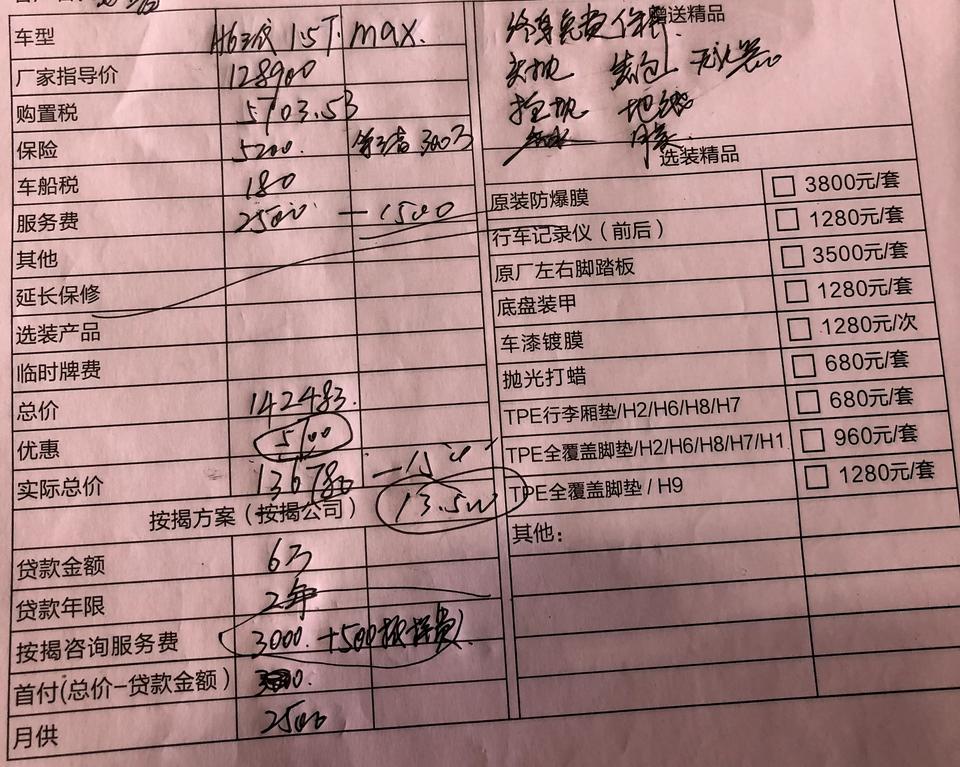 车型 H6三代 1.5T max.
厂家指导价 128900
购置税 5703.53
保险 5200. 第三者 300万
车船税 180
服务费 2500 — 1500
其他
延长保修
选装产品
临时牌费
总价 142483.
优惠
实际总价
13.5w
按揭方案（按揭公司）
贷款金额 6万
贷款年限 2年
按揭咨询服务费 3000. +500
首付(总价-贷款金额)
月供 2500
赠送精品
终身免费保养.
头枕
地毯
选装精品
原装防爆膜 3800元/套
行车记录仪（前后） 1280元/套
原厂左右脚踏板 3500元/套
底盘装甲 1280元/套
车漆镀膜 1280元/次
抛光打蜡 680元/套
TPE行李厢垫/H2/H6/H8/H7 680元/套
TPE全覆盖脚垫/H2/H6/H8/H7/H1 960元/套
TPE全覆盖脚垫 / H9 1280元/套
其他：